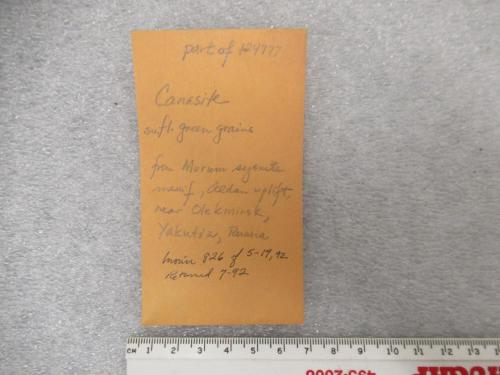 part of 124777
Canasite
soft green grains
from Murum syenite
massif, Aldan uplift,
near Olekminsk,
Yakutia, Russia
Invoice 826 of 5-19, 92
Retained 7-92
CM 1 2 3 4 5 6 7 8 9 10 11 12 13